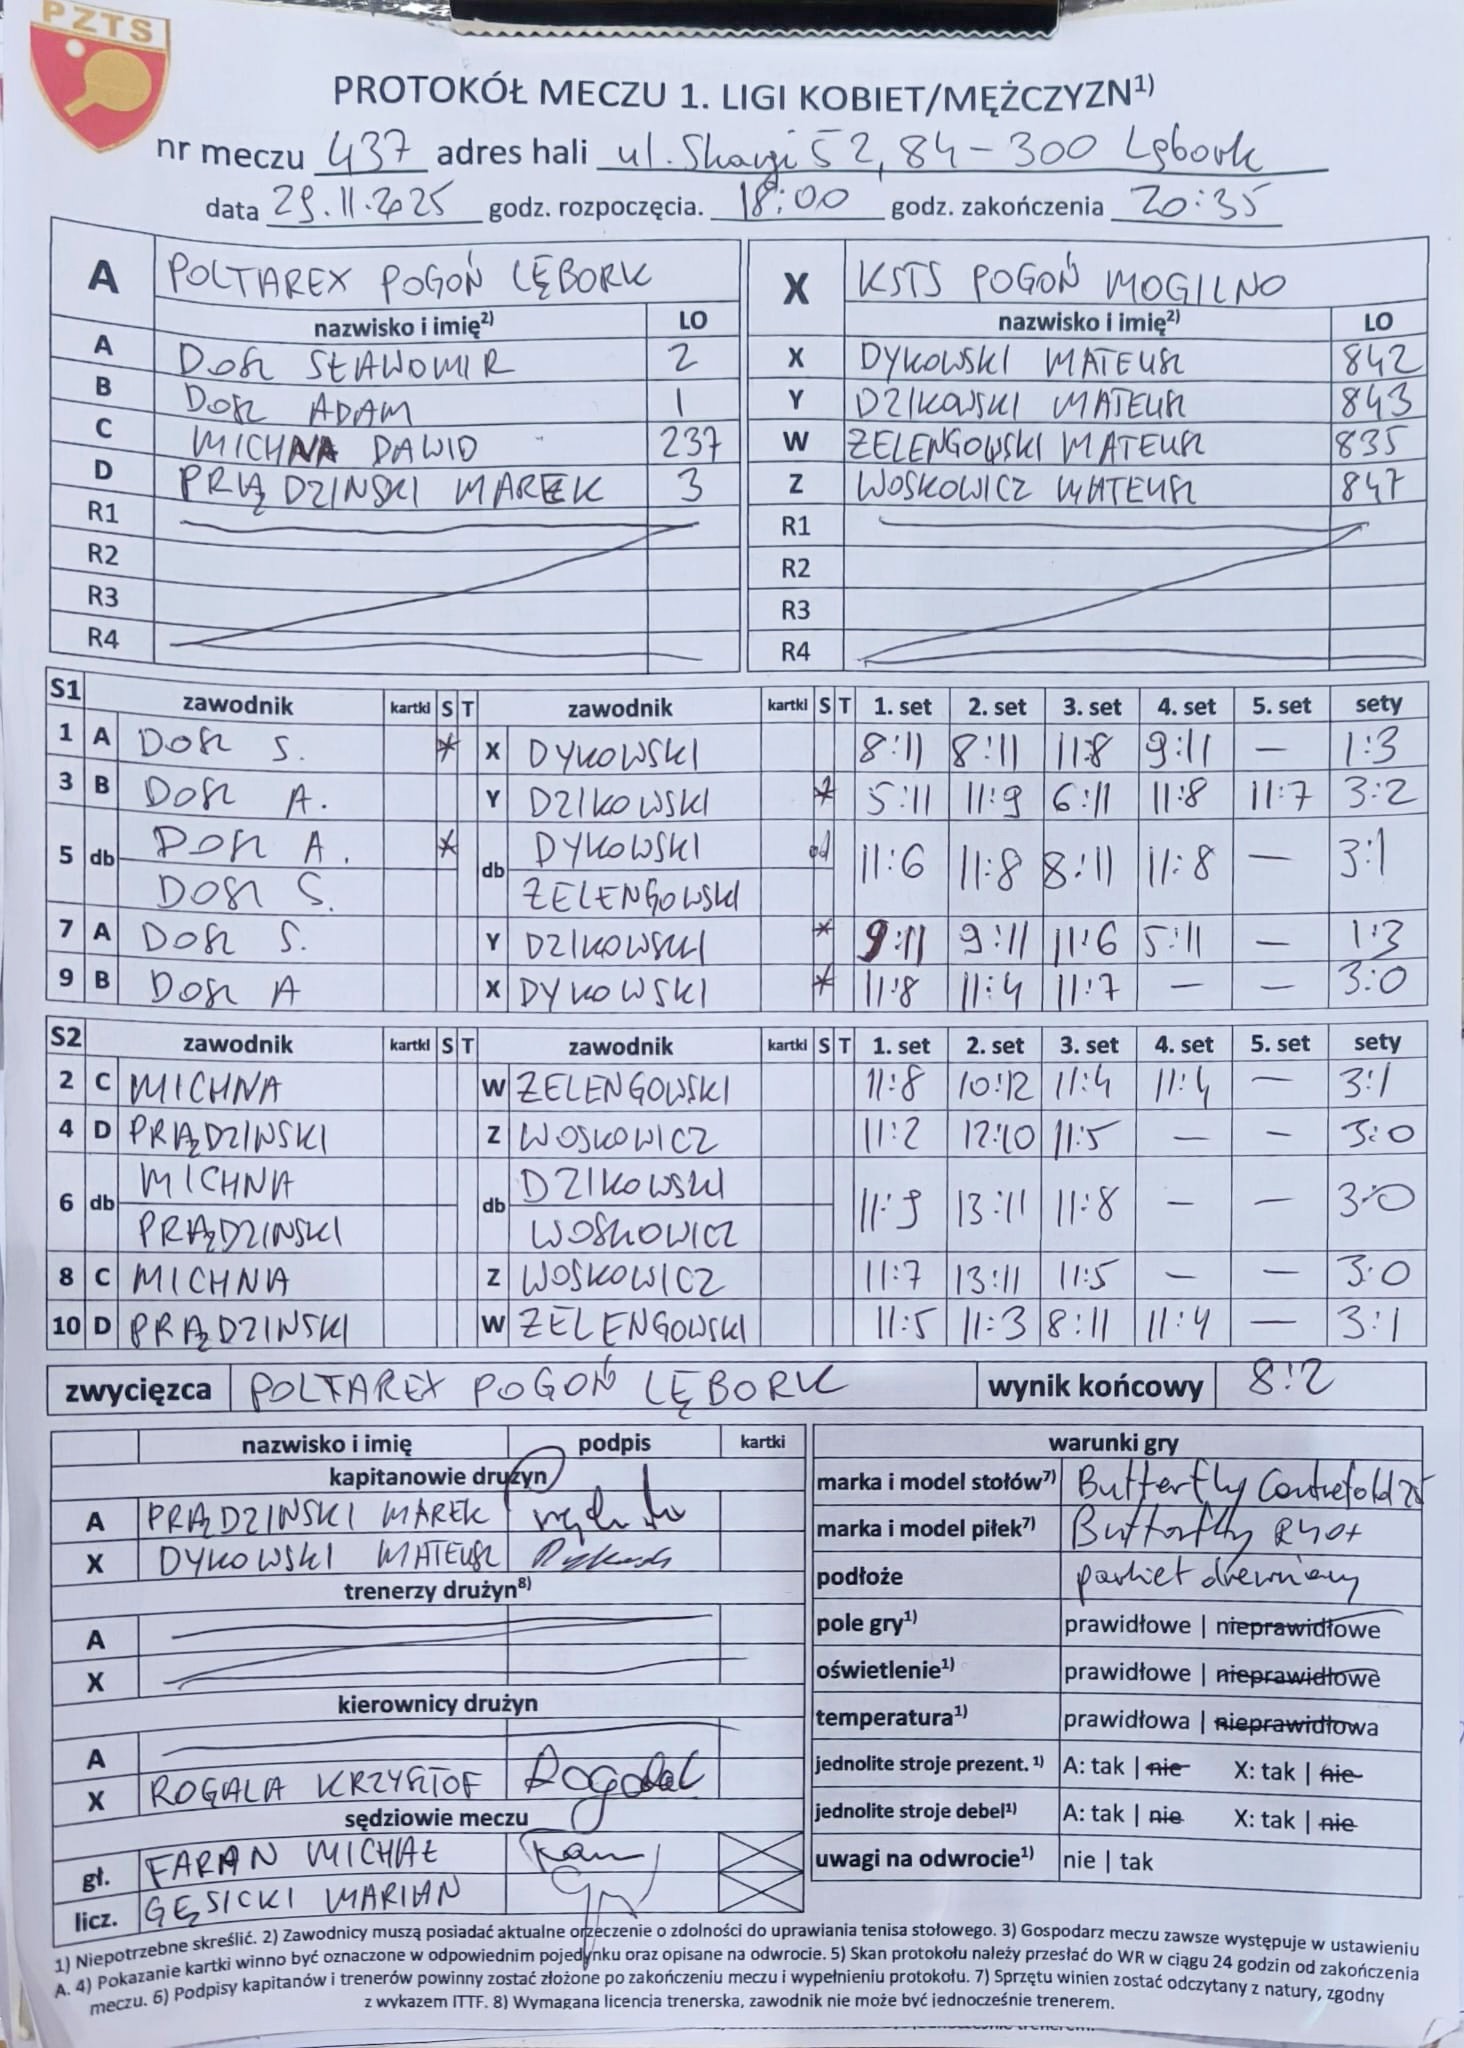 PZTS
PROTOKÓŁ MECZU 1. LIGI KOBIET/MĘŻCZYZN1)
nr meczu 437 adres hali ul. Skargi 52, 84-300 Lębork
data 29.11.2025 godz. rozpoczęcia. 18:00 godz. zakończenia 20:35
A POLTAREX POGOŃ LĘBORK
nazwisko i imię2) LO
A DOSZ SŁAWOMIR 2
B DOSZ ADAM 1
C MICHNA DAWID 237
D PRĄDZINSKI MAREK 3
R1
R2
R3
R4
X KSTS POGOŃ MOGILNO
nazwisko i imię2) LO
X DYKOWSKI MATEUSZ 842
Y DZIKOWSKI MATEUSZ 843
W ZELENGOWSKI MATEUSZ 835
Z WOSKOWICZ MATEUSZ 847
R1
R2
R3
R4
S1 zawodnik kartki S T zawodnik kartki S T 1. set 2. set 3. set 4. set 5. set sety
1 A DOSZ S. * X DYKOWSKI 8:11 8:11 11:8 9:11 — 1:3
3 B DOSZ A. Y DZIKOWSKI * 5:11 11:9 6:11 11:8 11:7 3:2
5 db DOSZ A. * db DYKOWSKI 11:6 11:8 8:11 11:8 — 3:1
DOSZ S. ZELENGOWSKI
7 A DOSZ S. Y DZIKOWSKI * 9:11 9:11 11:6 5:11 — 1:3
9 B DOSZ A X DYKOWSKI * 11:8 11:4 11:7 — — 3:0
S2 zawodnik kartki S T zawodnik kartki S T 1. set 2. set 3. set 4. set 5. set sety
2 C MICHNA W ZELENGOWSKI 11:8 10:12 11:4 11:4 — 3:1
4 D PRĄDZINSKI Z WOSKOWICZ 11:2 12:10 11:5 — — 3:0
6 db MICHNA db DZIKOWSKI 11:9 13:11 11:8 — — 3:0
PRĄDZINSKI WOSKOWICZ
8 C MICHNA Z WOSKOWICZ 11:7 13:11 11:5 — — 3:0
10 D PRĄDZINSKI W ZELENGOWSKI 11:5 11:3 8:11 11:4 — 3:1
zwycięzca POLTAREX POGOŃ LĘBORK wynik końcowy 8:2
nazwisko i imię podpis kartki
kapitanowie drużyn
A PRĄDZINSKI MAREK
X DYKOWSKI MATEUSZ
trenerzy drużyn8)
A
X
kierownicy drużyn
A
X ROGALA KRZYSZTOF Rogala
sędziowie meczu
gł. FARAN MICHAŁ
licz. GĘSICKI MARIAN
warunki gry
marka i model stołów7) Butterfly Centrefold 25
marka i model piłek7) Butterfly R40+
podłoże parkiet drewniany
pole gry1) prawidłowe | nieprawidłowe
oświetlenie1) prawidłowe | nieprawidłowe
temperatura1) prawidłowa | nieprawidłowa
jednolite stroje prezent. 1) A: tak | nie X: tak | nie
jednolite stroje debel1) A: tak | nie X: tak | nie
uwagi na odwrocie1) nie | tak
1) Niepotrzebne skreślić. 2) Zawodnicy muszą posiadać aktualne orzeczenie o zdolności do uprawiania tenisa stołowego. 3) Gospodarz meczu zawsze występuje w ustawieniu
A. 4) Pokazanie kartki winno być oznaczone w odpowiednim pojedynku oraz opisane na odwrocie. 5) Skan protokołu należy przesłać do WR w ciągu 24 godzin od zakończenia
meczu. 6) Podpisy kapitanów i trenerów powinny zostać złożone po zakończeniu meczu i wypełnieniu protokołu. 7) Sprzętu winien zostać odczytany z natury, zgodny
z wykazem ITTF. 8) Wymagana licencja trenerska, zawodnik nie może być jednocześnie trenerem.